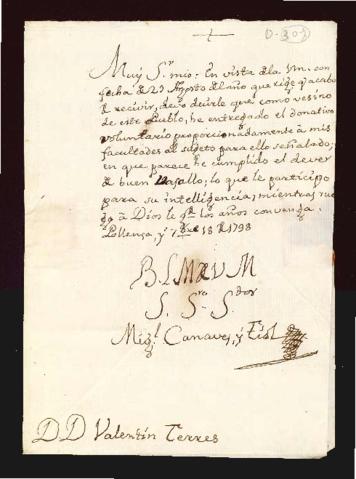 D-303
Muy S.r mio: En vista dela vm. con
fecha d 23 Agosto del año que rige q.e acabo
d recivir, devo decirle que como vesino
de este Pueblo, he entregado el donativo
voluntario proporcionadamente a mis
facultades al sujeto para ello señalado;
en que parace he cumplido el dever
de buen Vasallo; lo que le participo
para su intelligencia; mientras rue
go à Dios le g.e los años convenga.
Pollensa, y 7bre 18 d 1798
B L M d V M
S. S.ro S.dor
Mig.l Canaves, y
D D Valentin Terres